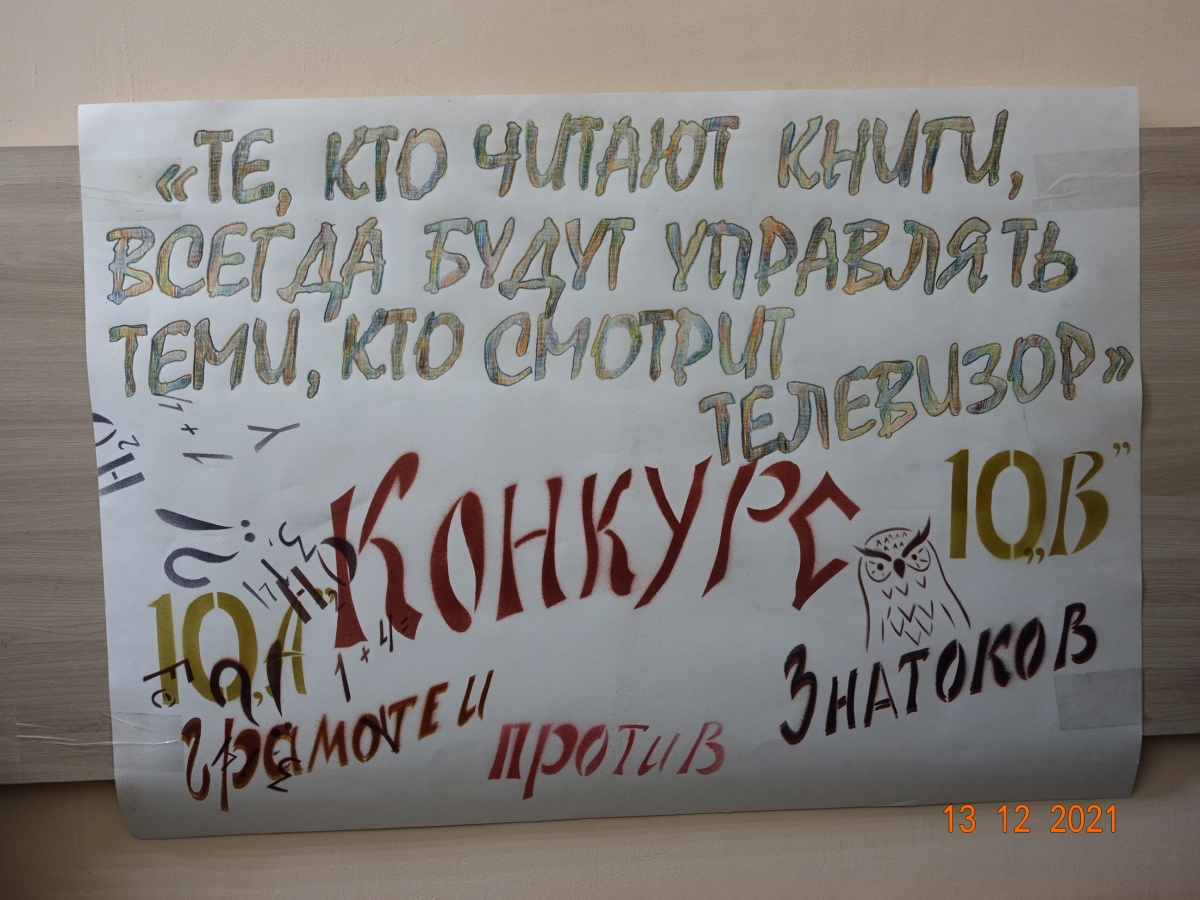 «ТЕ, КТО ЧИТАЮТ КНИГИ,
ВСЕГДА БУДУТ УПРАВЛЯТЬ
ТЕМИ, КТО СМОТРИТ
ТЕЛЕВИЗОР»
H2O
1+4
Y
КОНКУРС
10 „В”
?!
H2O
10 „А”
1+4=
?!
ГРАМОТЕИ
ПРОТИВ
ЗНАТОКОВ
13 12 2021